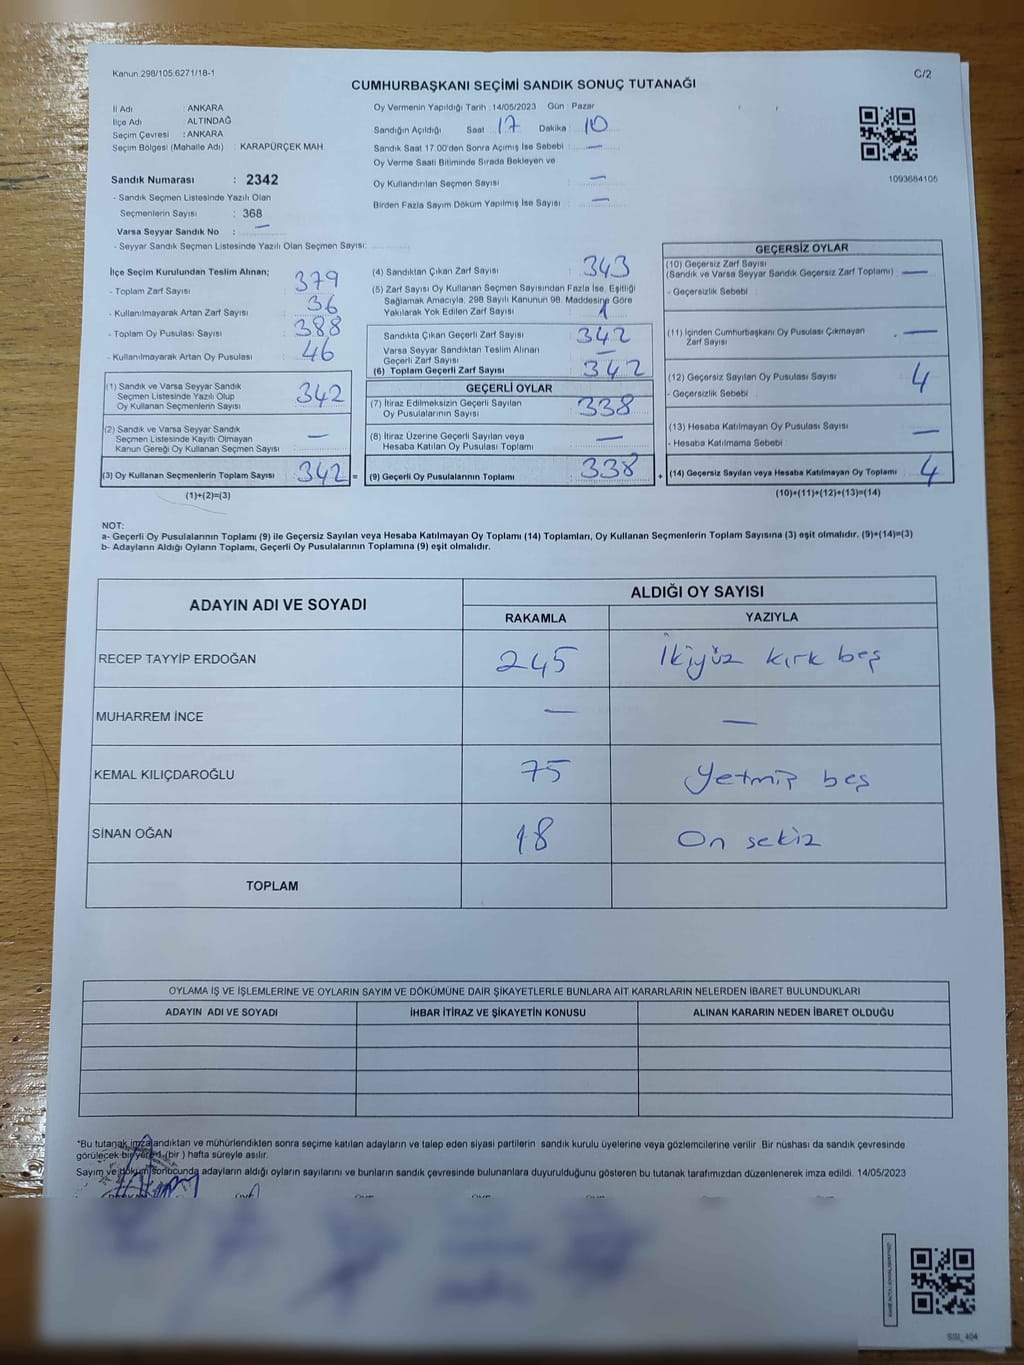 Kanun.298/105.6271/18-1
C/2
CUMHURBAŞKANI SEÇİMİ SANDIK SONUÇ TUTANAĞI
İl Adı : ANKARA
İlçe Adı : ALTINDAĞ
Seçim Çevresi : ANKARA
Seçim Bölgesi (Mahalle Adı) : KARAPÜRÇEK MAH
Oy Vermenin Yapıldığı Tarih : 14/05/2023 Gün : Pazar
Sandığın Açıldığı Saat : 17 Dakika : 10
Sandık Saat 17.00'den Sonra Açımış İse Sebebi : —
Oy Verme Saati Bitiminde Sırada Bekleyen ve
Oy Kullandırılan Seçmen Sayısı : —
Birden Fazla Sayım Döküm Yapılmış İse Sayısı : —
1093684105
Sandık Numarası : 2342
- Sandık Seçmen Listesinde Yazılı Olan
Seçmenlerin Sayısı : 368
Varsa Seyyar Sandık No : —
- Seyyar Sandık Seçmen Listesinde Yazılı Olan Seçmen Sayısı:
İlçe Seçim Kurulundan Teslim Alınan;
- Toplam Zarf Sayısı : 379
- Kullanılmayarak Artan Zarf Sayısı : 36
- Toplam Oy Pusulası Sayısı : 388
- Kullanılmayarak Artan Oy Pusulası : 46
(1) Sandık ve Varsa Seyyar Sandık
Seçmen Listesinde Yazılı Olup
Oy Kullanan Seçmenlerin Sayısı : 342
(2) Sandık ve Varsa Seyyar Sandık
Seçmen Listesinde Kayıtlı Olmayan
Kanun Gereği Oy Kullanan Seçmen Sayısı : —
(3) Oy Kullanan Seçmenlerin Toplam Sayısı : 342 =
(1)+(2)=(3)
(4) Sandıktan Çıkan Zarf Sayısı : 343
(5) Zarf Sayısı Oy Kullanan Seçmen Sayısından Fazla İse, Eşitliği
Sağlamak Amacıyla, 298 Sayılı Kanunun 98. Maddesine Göre
Yakılarak Yok Edilen Zarf Sayısı : 1
Sandıkta Çıkan Geçerli Zarf Sayısı : 342
Varsa Seyyar Sandıktan Teslim Alınan
Geçerli Zarf Sayısı : —
(6) Toplam Geçerli Zarf Sayısı : 342
GEÇERLİ OYLAR
(7) İtiraz Edilmeksizin Geçerli Sayılan
Oy Pusulalarının Sayısı : 338
(8) İtiraz Üzerine Geçerli Sayılan veya
Hesaba Katılan Oy Pusulası Toplamı : —
(9) Geçerli Oy Pusulalarının Toplamı : 338 +
GEÇERSİZ OYLAR
(10) Geçersiz Zarf Sayısı
(Sandık ve Varsa Seyyar Sandık Geçersiz Zarf Toplamı) : —
- Geçersizlik Sebebi :
(11) İçinden Cumhurbaşkanı Oy Pusulası Çıkmayan
Zarf Sayısı : —
(12) Geçersiz Sayılan Oy Pusulası Sayısı : 4
- Geçersizlik Sebebi :
(13) Hesaba Katılmayan Oy Pusulası Sayısı : —
- Hesaba Katılmama Sebebi :
(14) Geçersiz Sayılan veya Hesaba Katılmayan Oy Toplamı : 4
(10)+(11)+(12)+(13)=(14)
NOT:
a- Geçerli Oy Pusulalarının Toplamı (9) ile Geçersiz Sayılan veya Hesaba Katılmayan Oy Toplamı (14) Toplamları, Oy Kullanan Seçmenlerin Toplam Sayısına (3) eşit olmalıdır. (9)+(14)=(3)
b- Adayların Aldığı Oyların Toplamı, Geçerli Oy Pusulalarının Toplamına (9) eşit olmalıdır.
ADAYIN ADI VE SOYADI
ALDIĞI OY SAYISI
RAKAMLA YAZIYLA
RECEP TAYYİP ERDOĞAN 245 İkiyüz kırk beş
MUHARREM İNCE — —
KEMAL KILIÇDAROĞLU 75 Yetmiş beş
SİNAN OĞAN 18 On sekiz
TOPLAM
OYLAMA İŞ VE İŞLEMLERİNE VE OYLARIN SAYIM VE DÖKÜMÜNE DAİR ŞİKAYETLERLE BUNLARA AİT KARARLARIN NELERDEN İBARET BULUNDUKLARI
ADAYIN ADI VE SOYADI İHBAR İTİRAZ VE ŞİKAYETİN KONUSU ALINAN KARARIN NEDEN İBARET OLDUĞU
*Bu tutanak imzalandıktan ve mühürlendikten sonra seçime katılan adayların ve talep eden siyasi partilerin sandık kurulu üyelerine veya gözlemcilerine verilir. Bir nüshası da sandık çevresinde
görülecek bir yere 1 (bir ) hafta süreyle asılır.
Sayım ve döküm sonucunda adayların aldığı oyların sayılarını ve bunların sandık çevresinde bulunanlara duyurulduğunu gösteren bu tutanak tarafımızdan düzenlenerek imza edildi. 14/05/2023